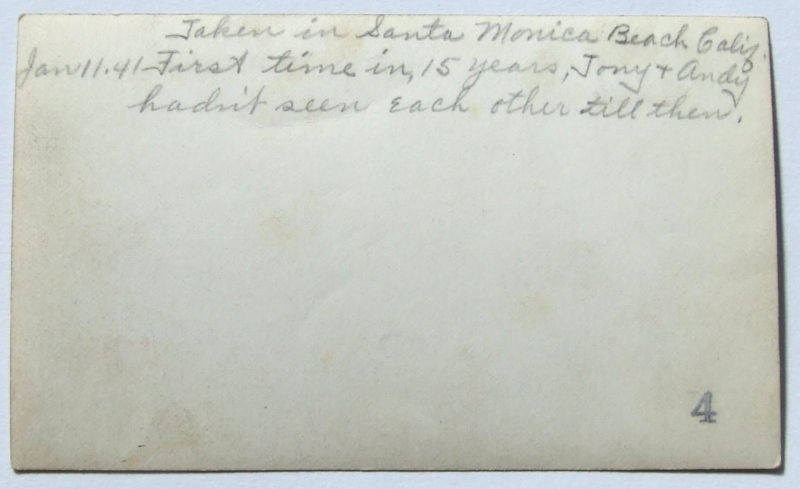 Taken in Santa Monica Beach Calif.
Jan 11.41 - First time in, 15 years, Tony + Andy
hadn't seen each other till then.
4